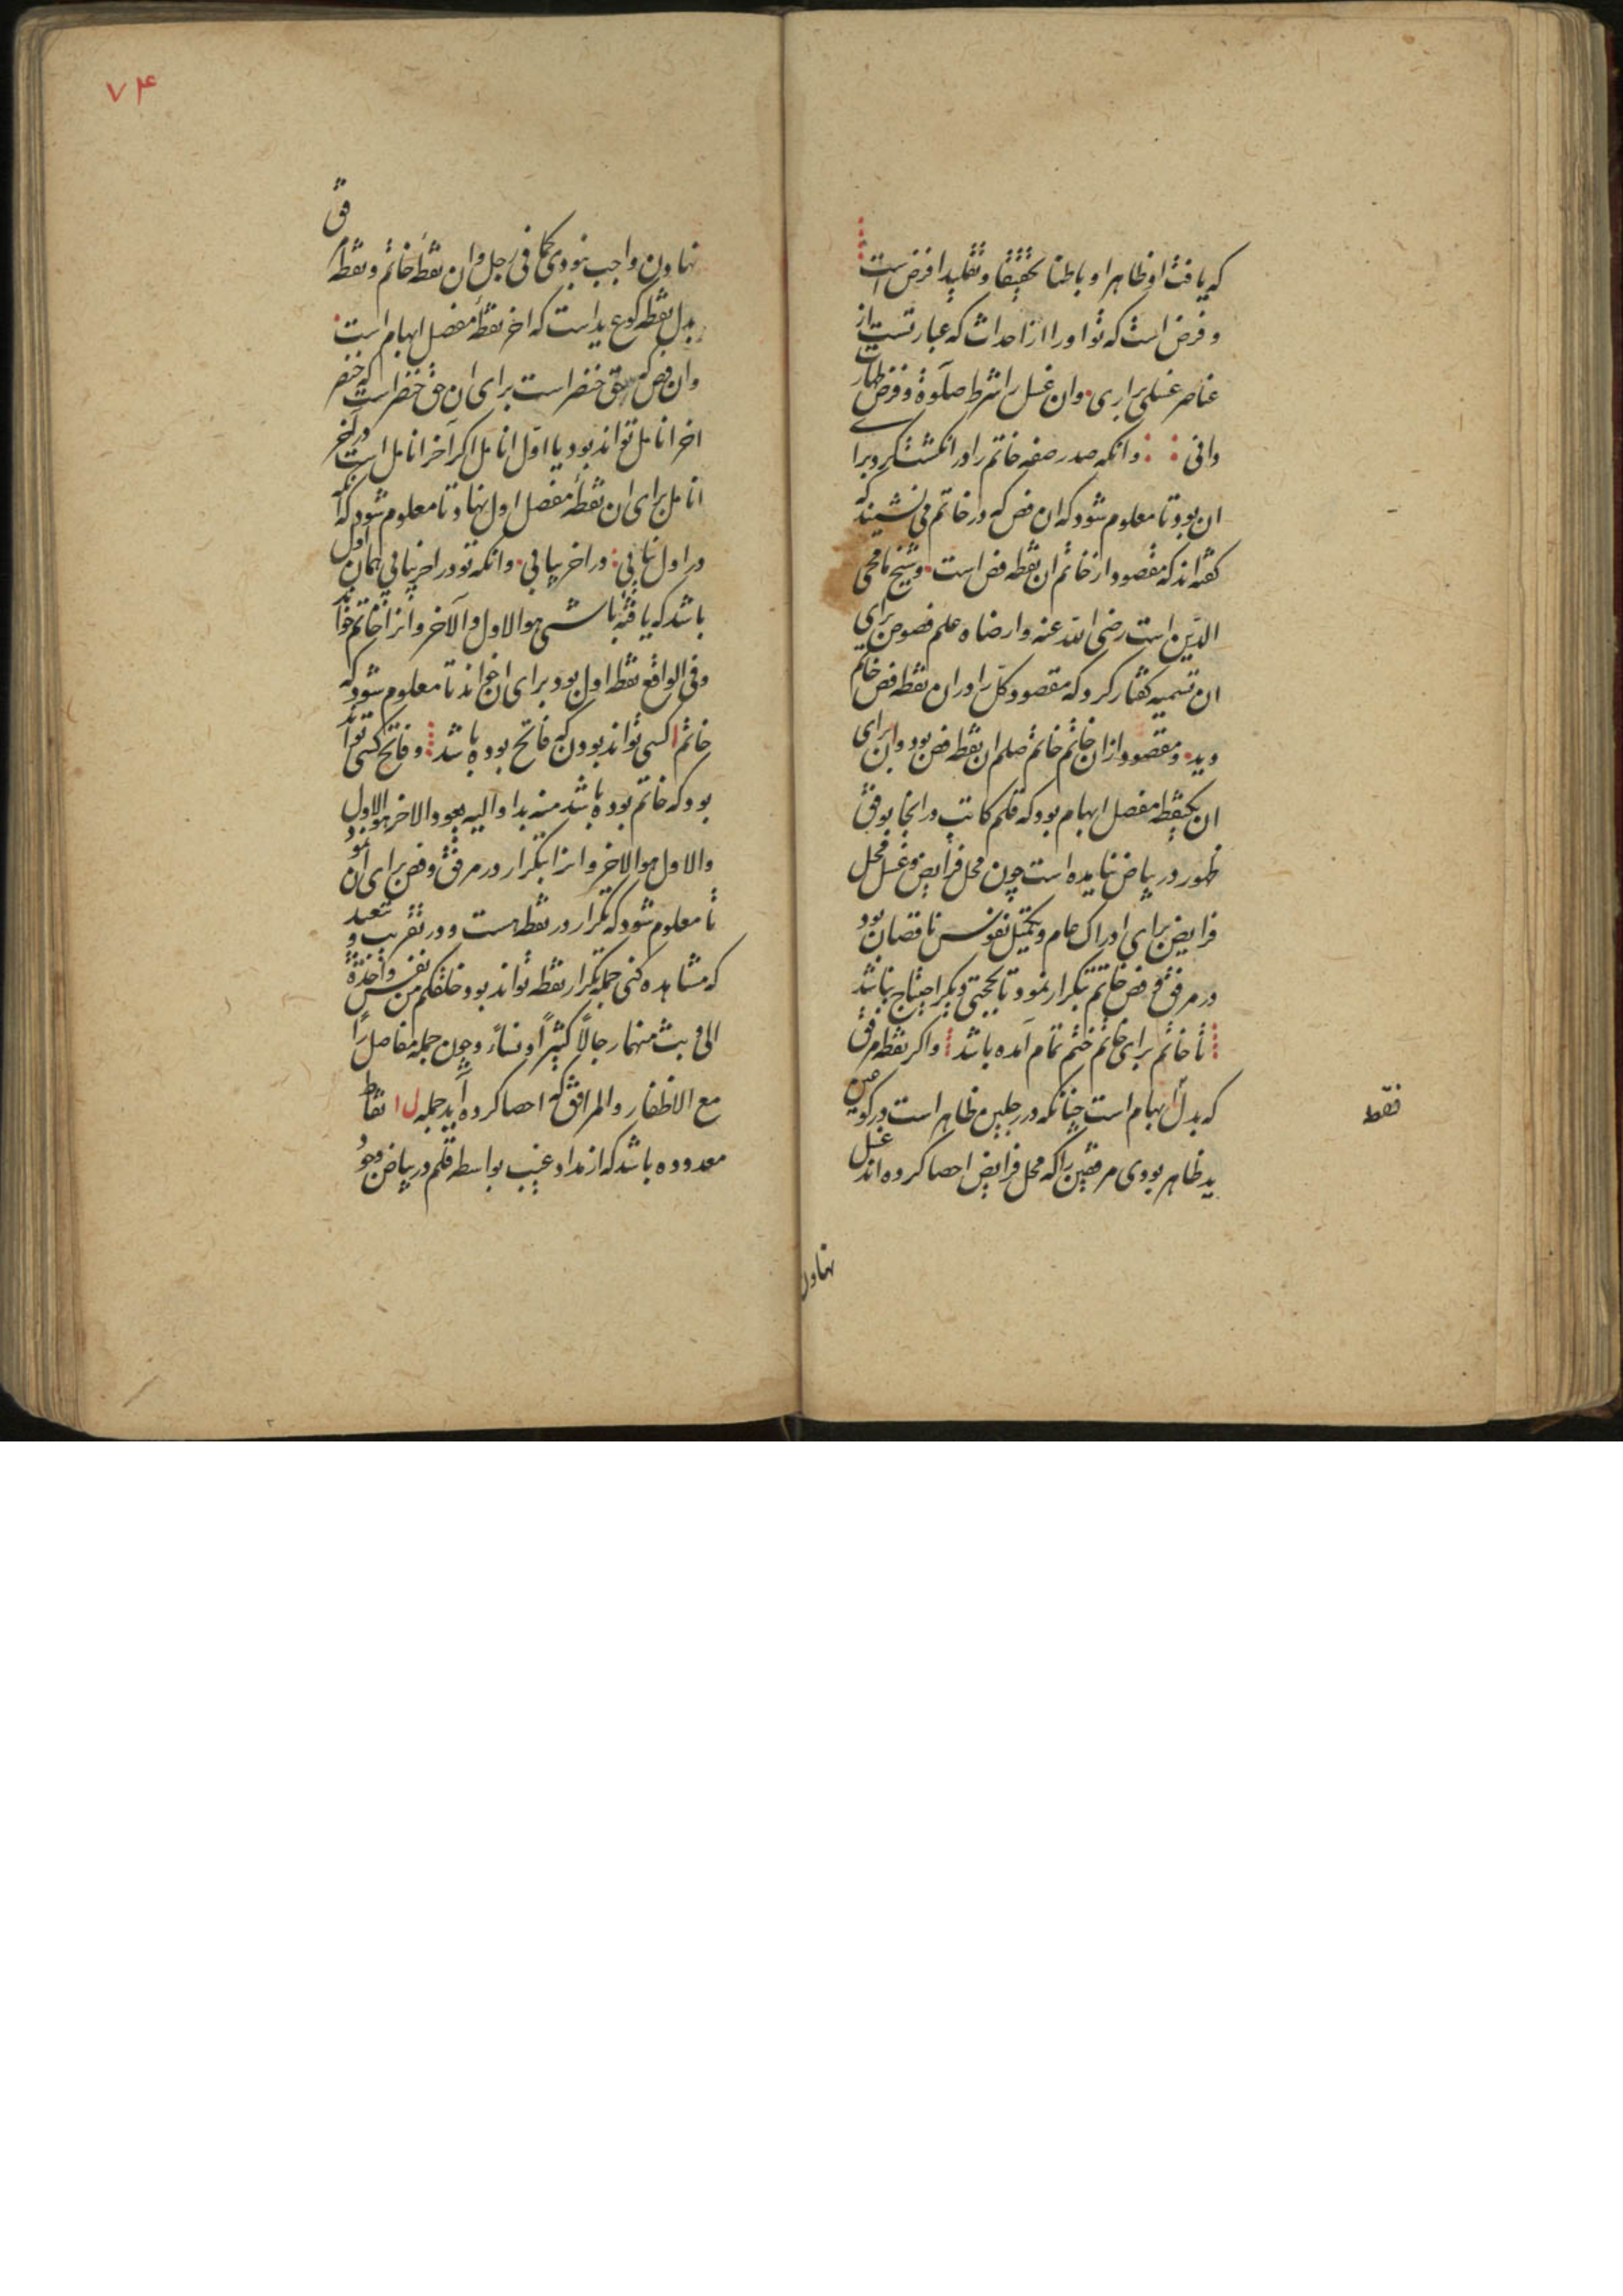 که یافت او ظاهرا و باطنا تحقیقا و تقلیدا فرض است
و فرض است که تو او را از احداث که عبارتست از
عناصر غسلی براری وان غسل را شرط صلوة و فرض طهارت
دانی وانکه صدر صفه خاتم را در انکشت کرد برای
ان بود تا معلوم شود که ان فص که در خاتم می نشیند که
کفته اند که مقصود از خاتم ان نقطه فص است و شیخ ما محی
الدین است رضی الله عنه وارضاه علم فصوص برای
ان تسمیه کفتار کرد که مقصود کل را در ان نقطه فص خاتم
دید و مقصود از ان خاتم خاتم صلم ان نقطه فص بود و ان برای
ان یکنقطه مفصل ابهام بود که قلم کاتب در انجا بوقت
ظهور در بیاض نیامده است چون محل فرایض و غسل محل
فرایض برای ادراک عام و تکمیل نفوس ناقصان بود
در مرفق و فص خاتم تکرار نمود تا بحجتی دیکر احتیاج نباشد
تا خاتم برای خاتم ختم تمام آمده باشد واکر نقطه مرفق
که بدل ابهام است چنانکه در رجلین ظاهر است در کوعین
ید ظاهر بودی مرفقین را که محل فرایض احصا کرده اند غسل
فقط
نهادن
۷۴
نهادن واجب نبودی کما فی رجل وان نقطه خاتم و نقطه مرفق
بدل نقطه کوع ید است که اخر نقطه مفصل ابهام است
وان فص که حق خنصر است برای ان حق خنصر است که خنصر
اخر انامل تواند بود یا اول انامل اکر آخر انامل است در آخر
انامل برای ان نقطه مفصل اول نهاد تا معلوم شود که آنکه
در اول نیابی در اخر بیابی وانکه تو در اخر بیابی همان اول
باشد که یافته باشی هو الاول والآخر وانرا خاتم خواند
وفی الواقع نقطه اول بود برای ان خواند تا معلوم شود که
خاتم کسی تواند بودن که فاتح بوده باشد و فاتح کسی تواند
بود که خاتم بوده باشد منه بدا والیه یعود والاخر هو الاول
والاول هو الاخر وانرا بتکرار در مرفق و فص برای ان نمود
تا معلوم شود که تکرار در نقطه هست و در تقریب و تبعید
که مشاهده کنی جمله تکرار نقطه تواند بود خلقکم من نفس واحدة
الی وبث منهما رجالا کثیرا ونساء و چون جمله مفاصل را
مع الاظفار والمرافق که احصا کرده آید جمله ل ا نقاط
معدوده باشد که از مداد غیب بواسطه قلم در بیاض وجود